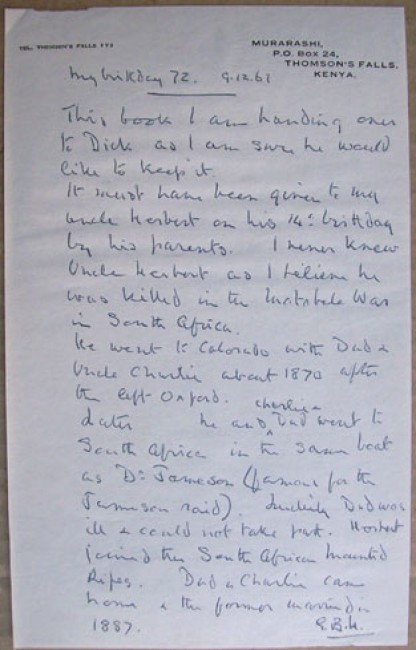 TEL. THOMSON'S FALLS
MURARASHI,
P.O. Box 24,
THOMSON'S FALLS,
KENYA.
My birthday 72. 9.12.61
This book I am handing over
to Dick as I am sure he would
like to keep it.
It must have been given to my
uncle Herbert on his 14th birthday
by his parents. I never knew
Uncle Herbert as I believe he
was killed in the Matabele War
in South Africa.
He went to Colorado with Dad &
Uncle Charlie about 1870 after
the left Oxford.
Charlie &
Later he and Dad went to
South Africa in the same boat
as Dr Jameson (famous for the
Jameson raid). Luckily Dad was
ill & could not take part. Herbert
joined the South African Mounted
Dad & Charlie came
home & the former married in
1887.